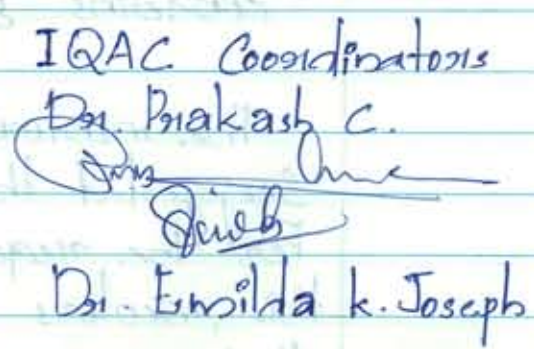 IQAC Coordinators
Dr. Prakash C.
Dr. Emilda K. Joseph